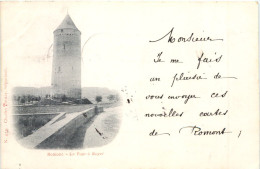 Monsieur
Je me fais
un plaisir de
vous envoyer ces
nouvelles cartes
de Romont !
Romont - La Tour à Boyer